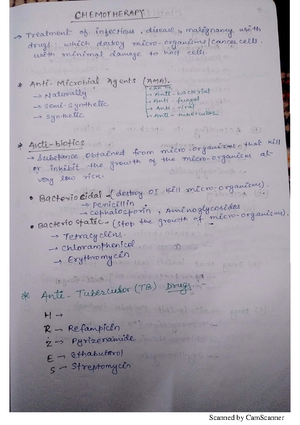 CHEMOTHERAPY
→ Treatment of infectious, diseas, malignancy with
drugs, which destroy micro-organisms/cancer cells
with minimal damage to host cells.
* Anti-Microbial Agents (AMA).
→ Naturally
→ Semi-synthetic
→ Synthetic
→ Anti-bacterial
→ Anti-fungal
→ Anti-viral
→ Anti-tubercular
* Anti-biotics
→ Substance obtained from micro-organisms that kill
or inhibit the growth of the micro-organism at
very low
• Bacterio cidal - (destroy or kill micro-organisms).
→ Penicillin
→ Cephalosporin, Aminoglycosides
• Bacterio Static - (stop the growth of micro-organisms).
→ Tetracyclins
→ Chloramphenicol
→ Erythromycin
* Anti-Tubercular (TB) Drugs -
H →
R → Refampicin
Z → Pyrizenamide
E → Ethabutorol
S → Streptomycin
Scanned by CamScanner